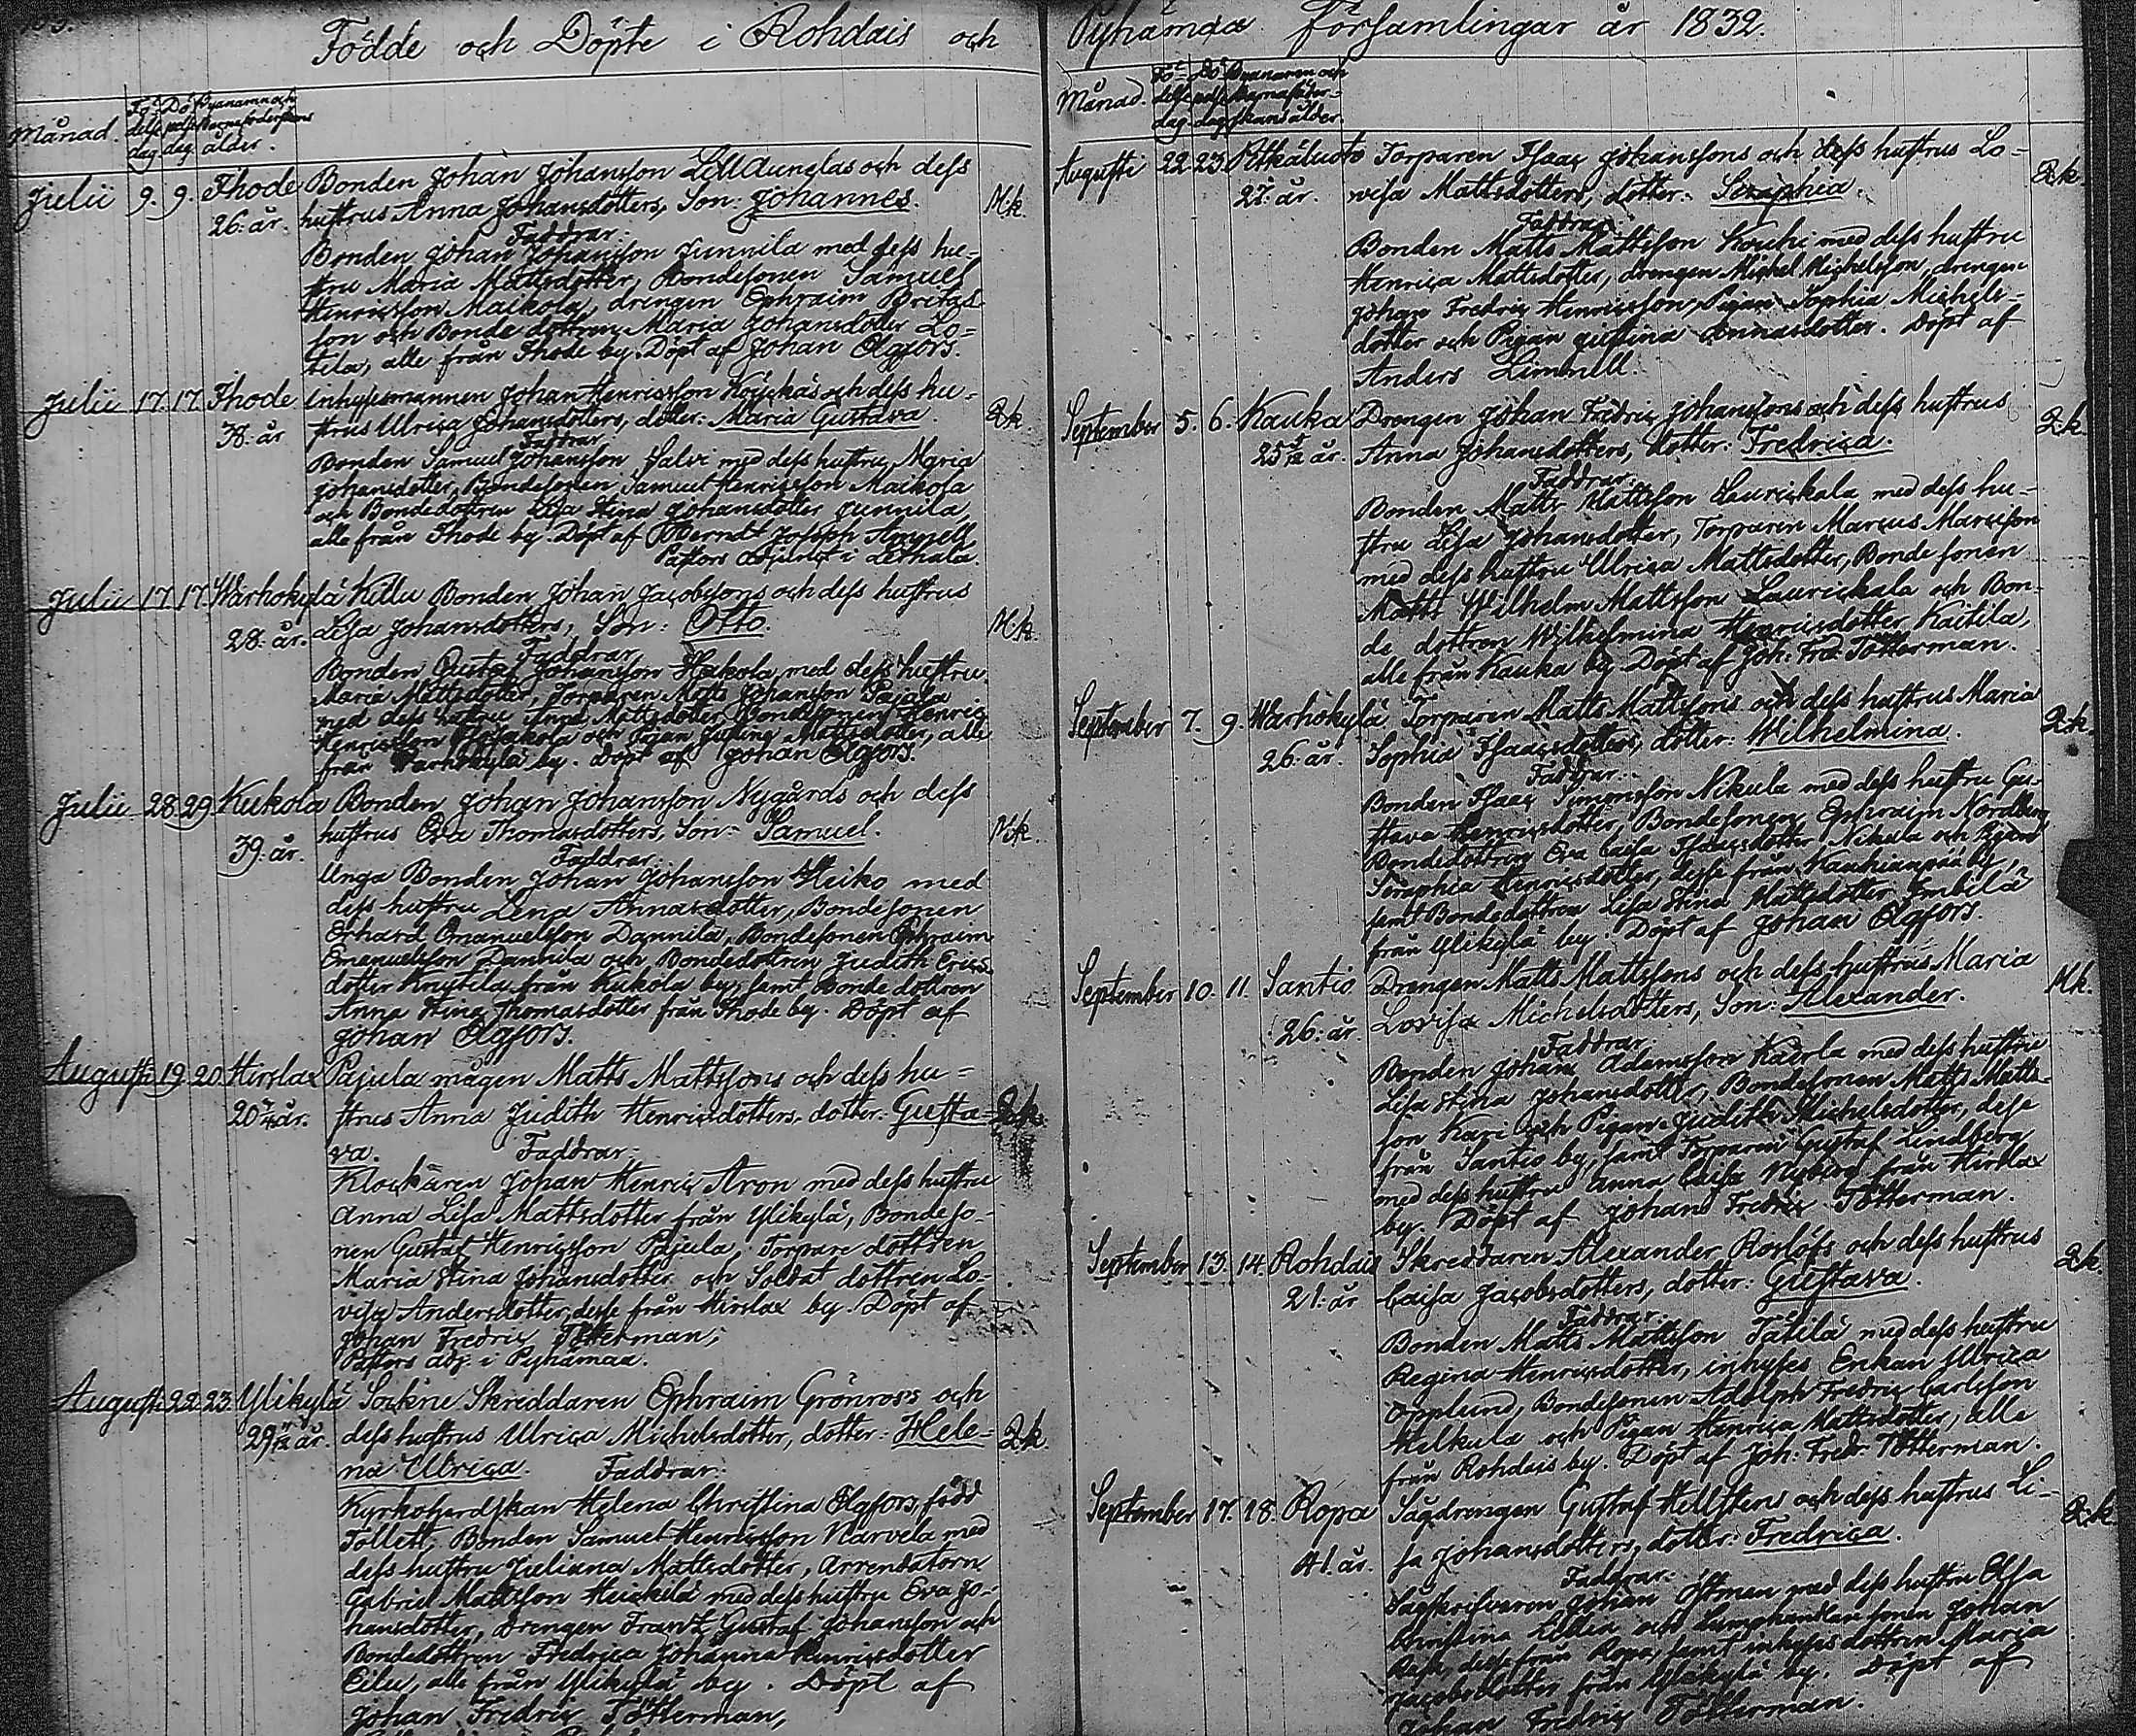 Födde och Döpte i Rohdais och
Månad.
Fö- Dö- Byanamn och
delse pelse Barnaföderskans
dag. dag. ålder.
Julii 9. 9. Ihode Bonden Johan Johansson och dess
26. år. hustrus Anna Johansdotters, Son: Johannes. M.k.
Faddrar:
Bonden Johan Johansson Junnila med dess hu-
stru Maria Mattsdotter, Bondesonen Samuel
Henricsson Maikola, drengen Ephraim Britas-
son och Bonde dottren Maria Johansdotter Lo-
tila, alle från Ihode by. Döpt af Johan Elgfors.
Julii 17. 17. Ihode Inhysesmannen Johan Henricsson och dess hu-
38. år strus Ulrica Johansdotters, dotter: Maria Gustava. Q.k.
Faddrar
Bonden Samuel Johansson Salvi med dess hustru Maria
Johansdotter, Bondesonen Samuel Henricsson Maikola
och Bondedottren Lisa Stina Johansdotter Junnila,
alle från Ihode by. Döpt af Berndt Joseph
Pastors Adjunct i Lethala.
Julii 17. 17. Warhokylä Killu Bonden Johan Jacobssons och dess hustrus
28. år. Lisa Johansdotters, Son: Otto. M.k.
Faddrar
Bonden Gustaf Johansson Hakola med dess hustru
Maria Mattsdotter, Torparen Matts Johansson Pajala
med dess hustru Anna Mattsdotter, Bondesonen Henric
Henricsson och Pigan Justina Mattsdotter, alle
från Warhokylä by. Döpt af Johan Elgfors.
Julii 28. 29. Kukola Bonden Johan Johansson Nygårds och dess
39. år. hustrus Eva Thomasdotters, Son: Samuel. M.k.
Faddrar
Unga Bonden Johan Johansson Heiko med
dess hustru Lena Annasdotter, Bondesonen
Erhard Emanuelsson Dannila, Bondesonen Ephraim
Emanuelsson Dannila och Bondedottren Judith Erics-
dotter Knutila från Kukola by, samt Bonde dottren
Anna Stina Thomasdotter från Ihode by. Döpt af
Johan Elgfors.
Augusti 19. 20. Hirslax Pajula mågen Matts Mattssons och dess hu-
20 år. strus Anna Judith Henricsdotters, dotter: Gusta- Q.k.
va. Faddrar:
Klockaren Johan Henric Aron med dess hustru
Anna Lisa Mattsdotter från Ylikylä, Bondeso-
nen Gustaf Henricsson Pajula, Torpare dottren
Maria Stina Johansdotter och Soldat dottren Lo-
visa Andersdotter, desse från Hirslax by. Döpt af
Johan Fredric Tötterman,
Pastors adj. i Pyhämaa.
Augusti 22. 23. Ylikylä Sockne Skreddaren Ephraim Grönroos och
29 år. dess hustrus Ulrica Michelsdotter, dotter: Hele- Q.k.
na Ulrica. Faddrar:
Kyrkoherdskan Helena Christina Elgfors, född
Tollett, Bonden Samuel Henricsson Narvela med
dess hustru Juliana Mattsdotter, Arrendatorn
Gabriel Mattsson Heickilä med dess hustru Eva Jo-
hansdotter, Drengen Frantz Gustaf Johansson och
Bondedottren Fredrica Johanna Henricsdotter
Eilu, alle från Ylikylä by. Döpt af
Johan Fredric Tötterman,
Pyhämaa Församlingar år 1832.
Månad.
Fö- Dö- Byanamn och
delse pelse Barnaföder-
dag. dag. skans ålder.
Augusti 22. 23. Pitkäluoto Torparen Isaac Johanssons och dess hustrus Lo-
27. år. visa Mattsdotters, dotter: Seraphia. Q.k.
Faddrar
Bonden Matts Mattsson Kouhi med dess hustru
Henrica Mattsdotter, drengen Michel Michelsson, drengen
Johan Fredric Henricsson, Pigan Sophia Michels-
dotter och Pigan Justina Annasdotter. Döpt af
Anders Limnell.
September 5. 6. Kauka Drengen Johan Fredric Johanssons och dess hustrus
25 år. Anna Johansdotters, dotter: Fredrica. Q.k.
Faddrar.
Bonden Matts Mattsson Laurickala med dess hu-
stru Lisa Johansdotter, Torparen Marcus Marcisson
med dess hustru Ulrica Mattsdotter, Bonde sonen
Matts Wilhelm Mattsson Laurickala och Bon-
de dottren Wilhelmina Henricsdotter Kaitila,
alle från Kauka by. Döpt af Joh. Fred. Tötterman.
September 7. 9. Warhokylä Torparen Matts Mattssons och dess hustrus Maria
26. år. Sophia Isaacsdotters, dotter: Wilhelmina. Q.k.
Faddrar.
Bonden Isaac Simonsson Nikula med dess hustru Gu-
stava Henricsdotter, Bondesonen Ephraim Nordberg,
Bondedottren Eva Caisa Isaacsdotter Nikula och Pigan
Seraphia Henricsdotter, desse från Kaukianpää by,
samt Bondedottren Lisa Stina Mattsdotter Imbilä
från Ylikylä by. Döpt af Johan Elgfors.
September 10. 11. Santio Drengen Matts Mattssons och dess hustrus Maria
26. år. Lovisa Michelsdotters, Son: Alexander. M.k.
Faddrar.
Bonden Johan Adamsson Kaerla med dess hustru
Lisa Stina Johansdotter, Bondesonen Matts Matts-
son Kari och Pigan Judith Michelsdotter, desse
från Santio by, samt Torparen Gustaf Lindberg
med dess hustru Anna Caisa Nyberg från Hirslax
by. Döpt af Johan Fredric Tötterman.
September 13. 14. Rohdais Skreddaren Alexander Roslöfs och dess hustrus
21. år Caisa Jacobsdotters, dotter: Gustava. Q.k.
Faddrar.
Bonden Matts Mattsson Tätilä med dess hustru
Regina Henricsdotter, inhyses Enkan Ulrica
Opplund, Bondesonen Adolph Fredric Carlsson
Helkula och Pigan Henrica Mattsdotter, alle
från Rohdais by. Döpt af Joh: Fredr. Tötterman.
September 17. 18. Ropa Sågdrengen Gustaf Hellstens och dess hustrus Li-
41. år. sa Johansdotters, dotter: Fredrica. Q.k.
Faddrar.
Sågskrifvaren Johan Östman med dess hustru Elsa
Christina och sonen Johan
Rask, desse från Ropa, samt inhyses dottren Maria
Jacobsdotter från Ylikylä by. Döpt af
Johan Fredric Tötterman.